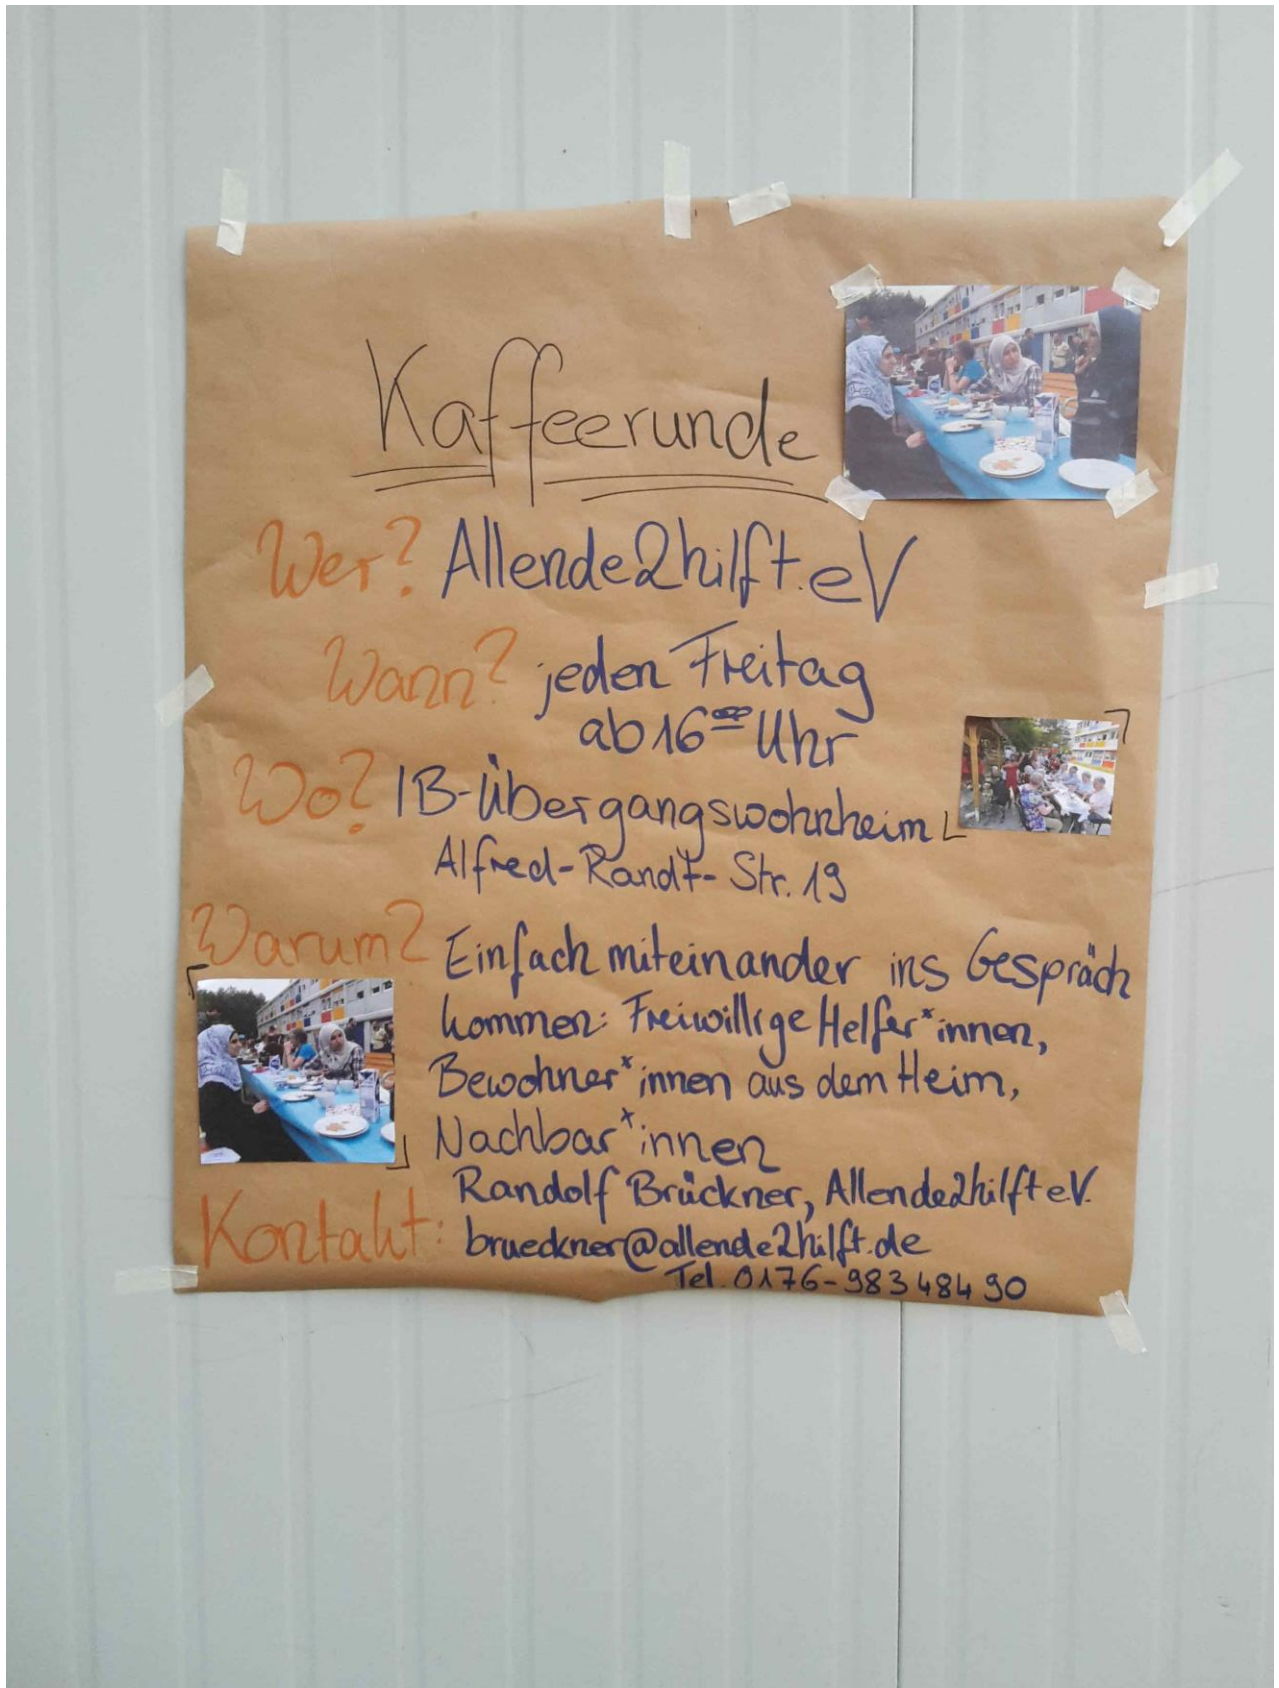 Kaffeerunde
Wer? Allende2hilft.eV
Wann? jeden Freitag
ab 16⁰⁰ Uhr
Wo? IB-Übergangswohnheim
Alfred-Randt-Str. 19
Warum? Einfach miteinander ins Gespräch
kommen: Freiwillige Helfer*innen,
Bewohner*innen aus dem Heim,
Nachbar*innen
Randolf Brückner, Allende2hilft eV.
Kontakt: brueckner@allende2hilft.de
Tel. 0176-983 484 90